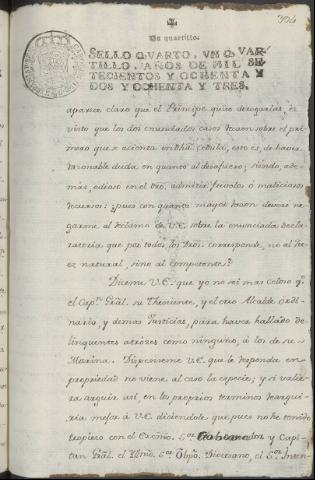 396
Un quartillo.
SELLO QVARTO, VN QVAR-
TILLO, AÑOS DE MIL SE-
TECIENTOS Y OCHENTA Y
DOS Y OCHENTA Y TRES.
aparece claro que el Principe quiso derogarlas, es
visto que los dos enunciados casos recaen sobre el pri-
mero que se asienta en dha. cedula, esto es, de haver
razonable duda en quanto al desafuero; siendo, ade-
mas, odioso en el dro. admitir frivolos ó maliciosos
recursos: pues con quanta mayor razon deveré ne-
garme al reclamo de V.E. sobre la enunciada decla-
ratoria que por todos los dros. corresponde, no al Ju-
ez natural, sino al competente?
Diceme V.E. que yo no soi mas celoso qe.
el Capn. Gral. su Theniente, y el otro Alcalde ordi-
nario, y demas Justicias, para haver hallado de-
linquentes atroces como ninguno, á los de su
Marina. Dispenseme V.E. que le responda en
propriedad no viene al caso la especie; y si valie-
ra arguir asi, en los proprios terminos reargui-
ria mejor á V.E. diciendole que pues no he tenido
tropiezo con el Excmo. Sor. Governador y Capi-
tan Gral. el Yllmo. Sor. Obpo. Diocesano, el Sor. Inten-